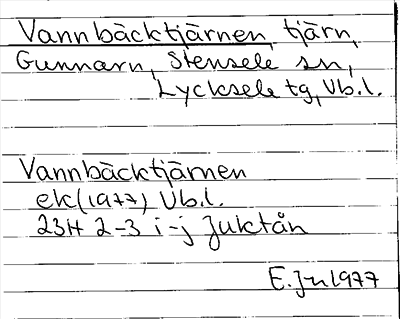 Vannbäcktjärnen, tjärn,
Gunnarn, Stensele sn,
Lycksele tg, Vb.l.
Vannbäcktjärnen
ek (1977) Vb.l.
23H 2-3 i-j Juktån
E. Jn 1977